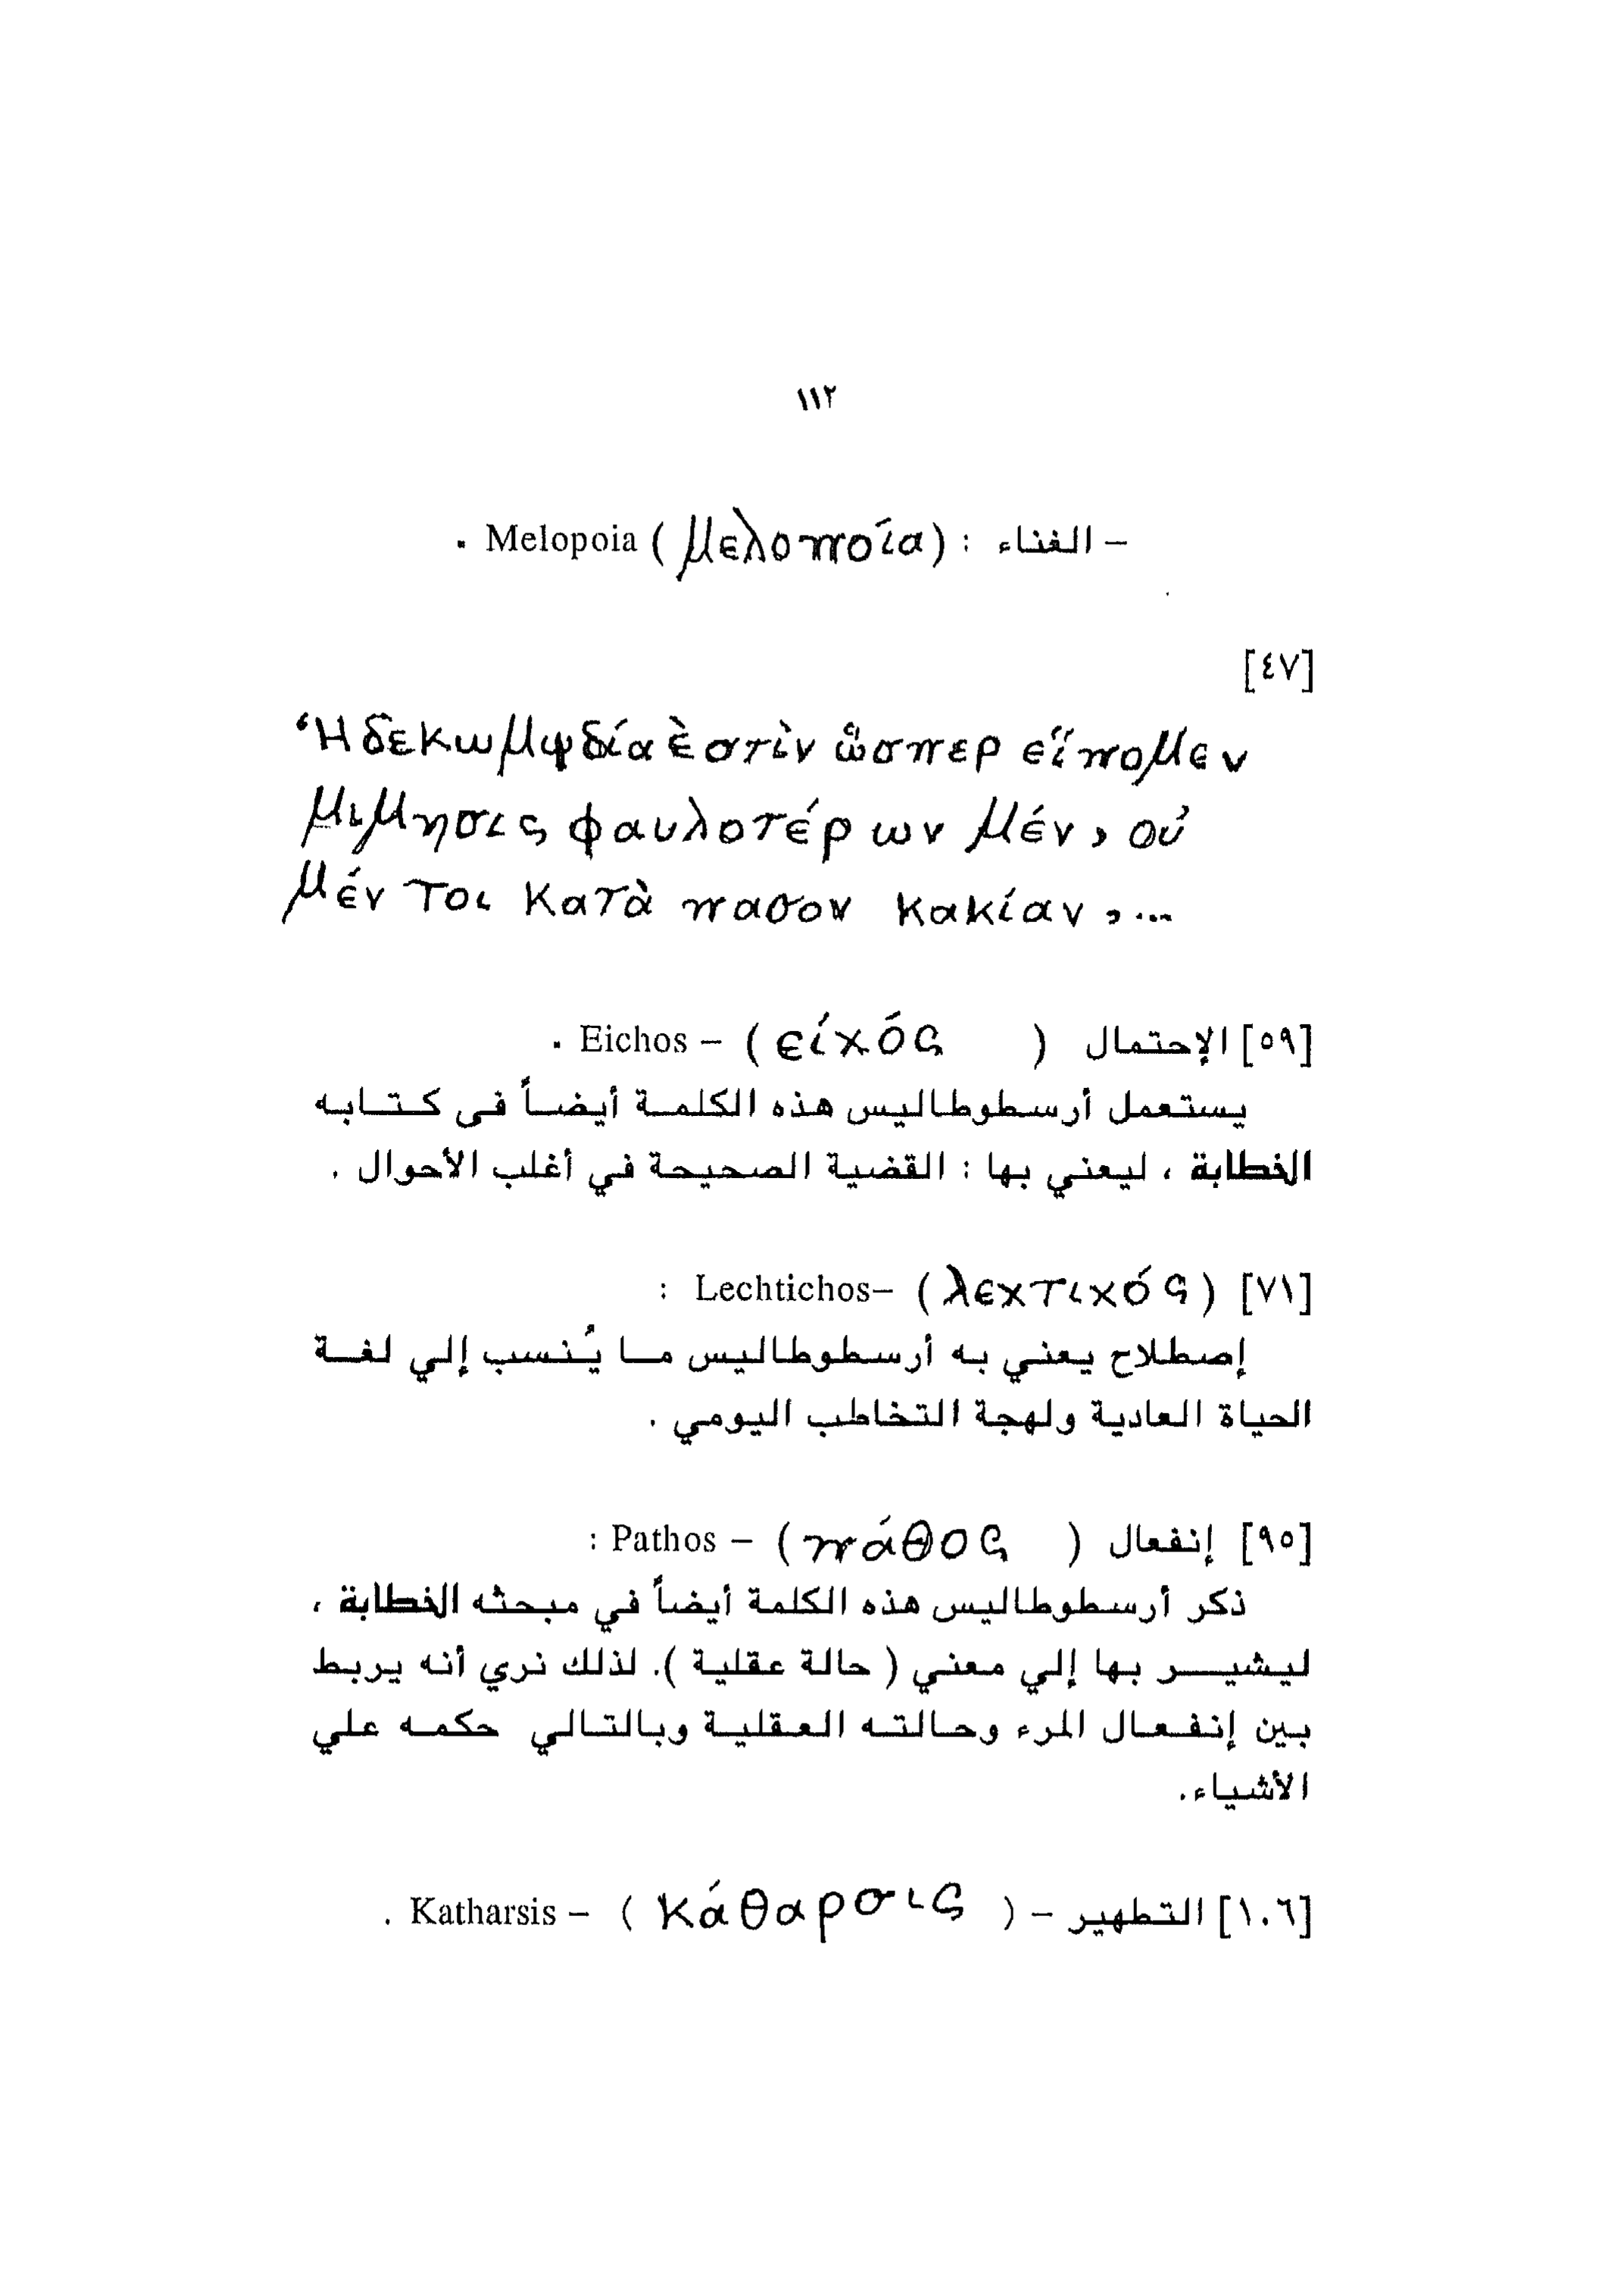 ١١٢
– الغناء : (μελοποία) Melopoia .
[٤٧]
Ἡ δε κωμψδία ἐστὶν ὥσπερ εἴπομεν
μιμησις φαυλοτέρων μέν, οὐ
μέν τοι κατὰ πασον κακίαν, ...
[٥٩] الإحتمال ( είχός ) – Eichos .
يستعمل أرسطوطاليس هذه الكلمة أيضاً فى كتابه
الخطابة ، ليعني بها : القضية الصحيحة في أغلب الأحوال .
[٧١] (λεχτιχός) –Lechtichos :
إصطلاح يعني به أرسطوطاليس ما يُنسب إلي لغة
الحياة العادية ولهجة التخاطب اليومي .
[٩٥] إنفعال ( πάθος ) – Pathos :
ذكر أرسطوطاليس هذه الكلمة أيضاً في مبحثه الخطابة ،
ليشير بها إلي معني ( حالة عقلية ). لذلك نري أنه يربط
بين إنفعال المرء وحالته العقلية وبالتالي حكمه علي
الأشياء.
[١٠٦] التطهير – ( κάθαρσις ) – Katharsis .